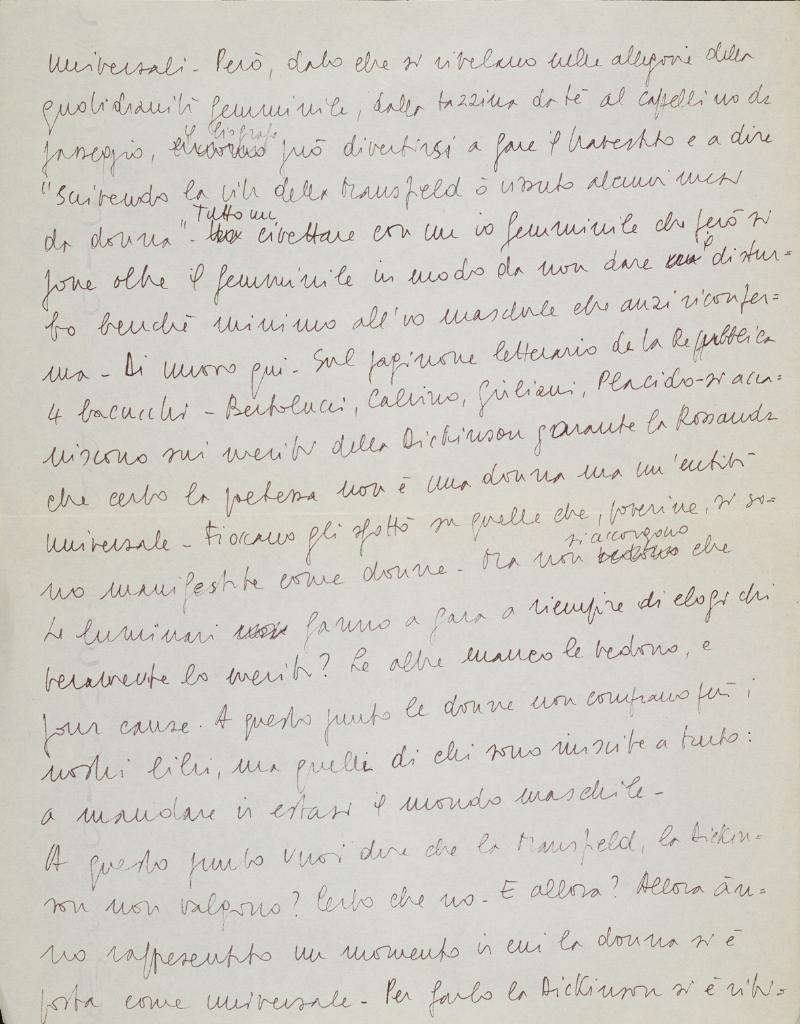 universali - Però, dato che si rivelano nelle allegorie della
quotidianità femminile, dalla tazzina da tè al cappellino da
il biografo
passeggio, può divertirsi a fare il travestito e a dire
"Scrivendo la vita della Mansfield ò vissuto alcuni mesi
Tutto un
da donna" - civettare con un io femminile che però si
pone oltre il femminile in modo da non dare il distur=
bo benché minimo all'io maschile che anzi riconfer=
ma - Di nuovo qui - Sul paginone letterario de la Repubblica
4 bacucchi - Bertolucci, Calvino, Giuliani, Placido - si acca=
niscono sui meriti della Dickinson garante la Rossanda
che certo la poetessa non è una donna ma un'entità
universale - Fioccano gli sfottò su quelle che, poverine, si so=
si accorgono
no manifestate come donne - Ma non che
le luminari fanno a gara a riempire di elogi chi
veramente lo merita? Le altre manco le vedono, e
pour cause. A questo punto le donne non comprano più i
nostri libri, ma quelli di chi sono riuscite a tanto:
a mandare in estasi il mondo maschile -
A questo punto vuoi dire che la Mansfield, la Dickin=
son non valgono? Certo che no - E allora? Allora àn=
no rappresentato un momento in cui la donna si è
posta come universale - Per farlo la Dickinson si è riti=